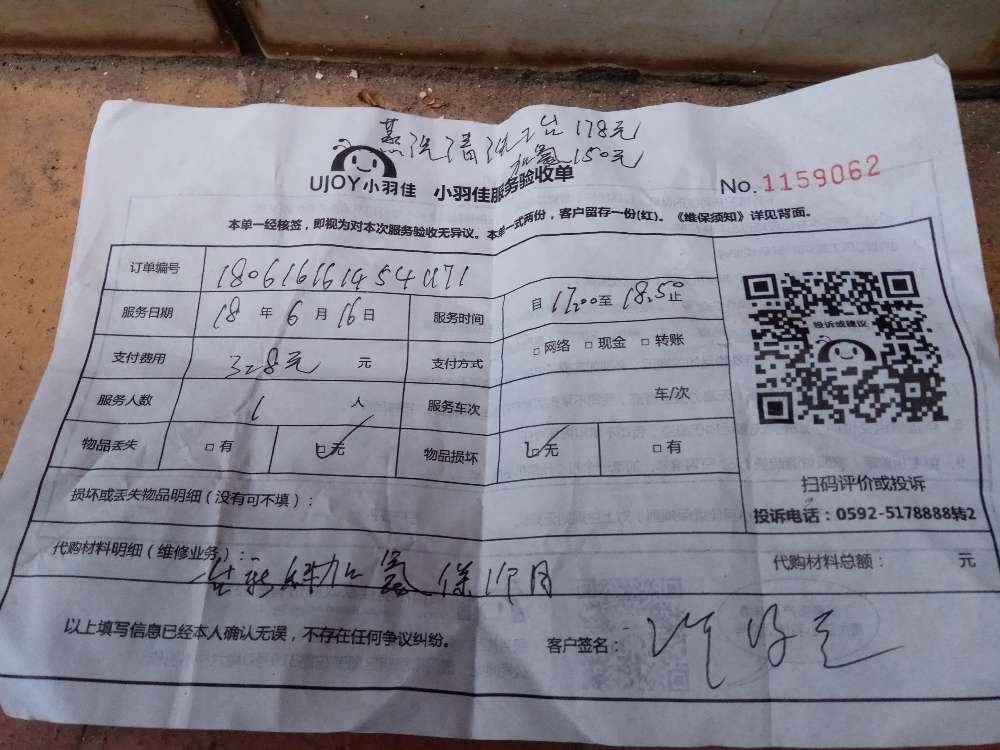 蒸洗清洗2台 178元
加氟150元
UJOY小羽佳 小羽佳服务验收单
No.1159062
本单一经核签，即视为对本次服务验收无异议。本单一式两份，客户留存一份(红)。《维保须知》详见背面。
订单编号
服务日期 18 年 6 月 16 日 服务时间 自 17:00 至 18:50 止
支付费用 328元 元 支付方式 □网络 □现金 □转账
服务人数 1 人 服务车次 车/次
物品丢失 □有 □无 物品损坏 □无 □有
损坏或丢失物品明细（没有可不填）：
代购材料明细（维修业务）： 代购材料总额： 元
保1个月
以上填写信息已经本人确认无误，不存在任何争议纠纷。 客户签名：
投诉或建议
扫码评价或投诉
投诉电话：0592-5178888转2